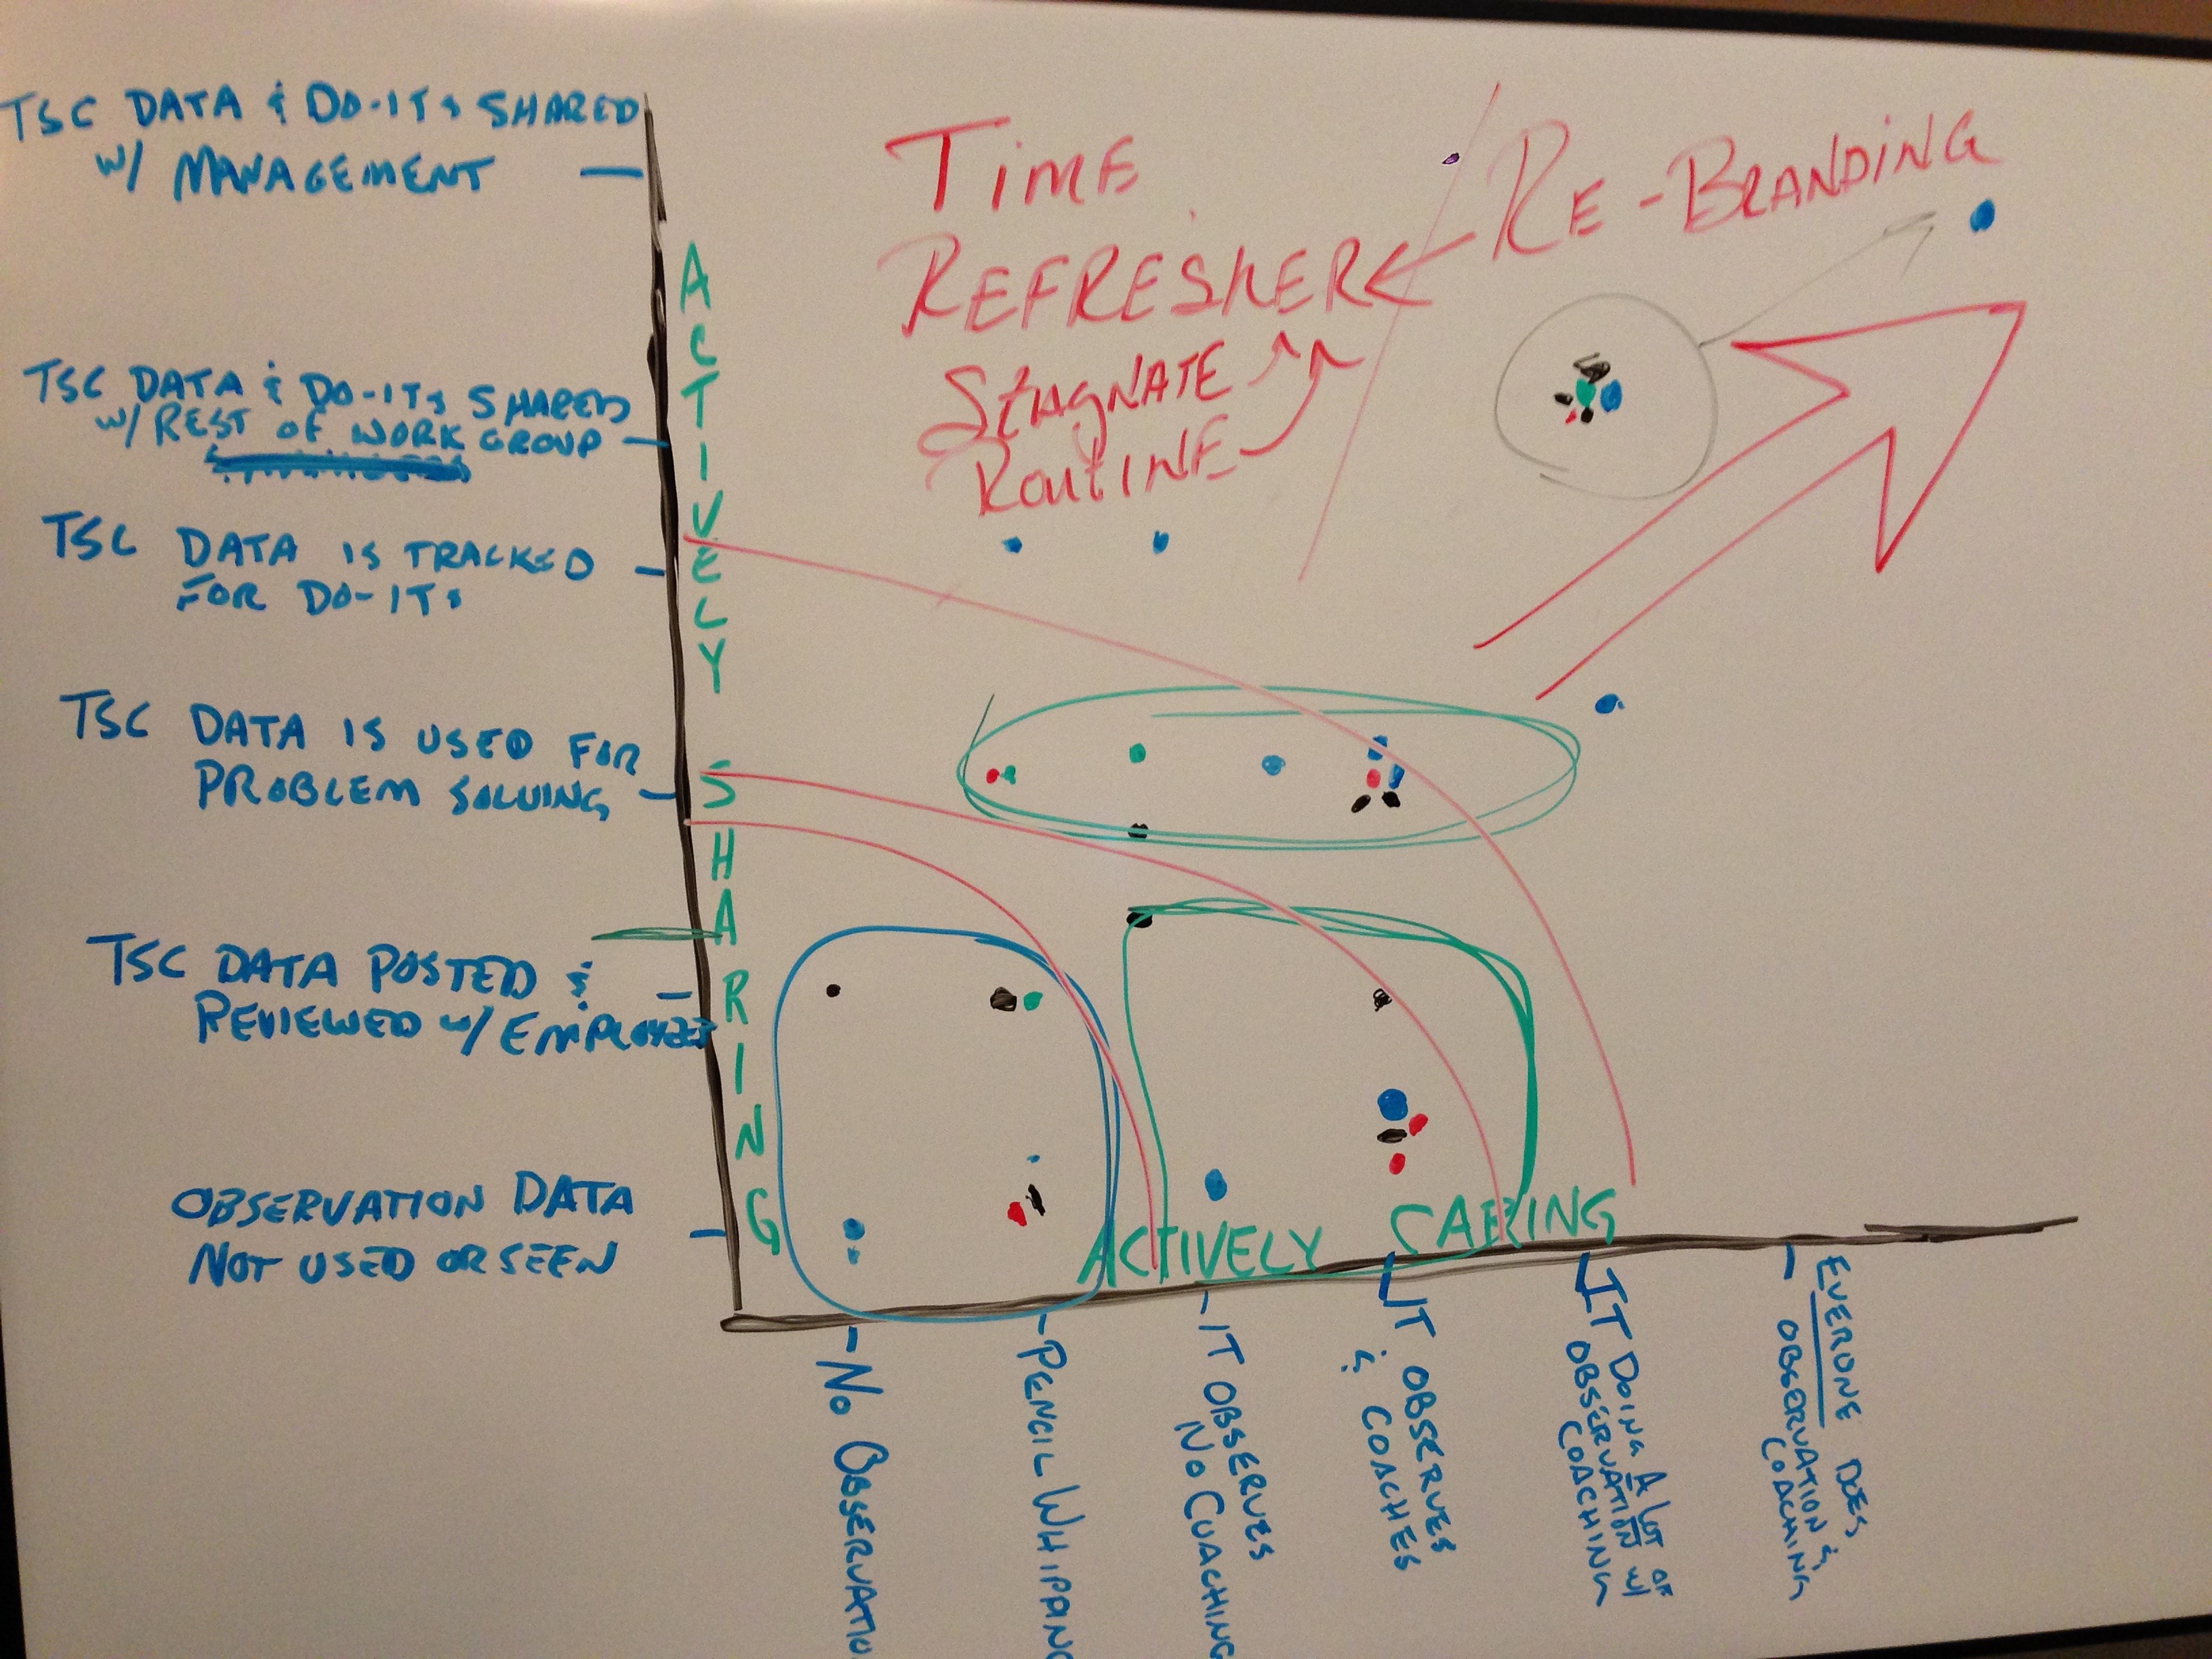 TSC DATA & DO-ITS SHARED
W/ MANAGEMENT
TSC DATA & DO-ITS SHARED
W/ REST OF WORK GROUP
TSC DATA IS TRACKED
FOR DO-ITS
TSC DATA IS USED FOR
PROBLEM SOLVING
TSC DATA POSTED &
REVIEWED W/ EMPLOYEES
OBSERVATION DATA
NOT USED OR SEEN
ACTIVELY SHARING
TIME
REFRESHER
STAGNATE
ROUTINE
RE-BRANDING
ACTIVELY CARING
NO OBSERVATIO
PENCIL WHIPPING
IT OBSERVES
NO COACHING
IT OBSERVES
& COACHES
IT DOING A LOT OF
OBSERVATION W/
COACHING
EVERONE DOES
OBSERVATION &
COACHING